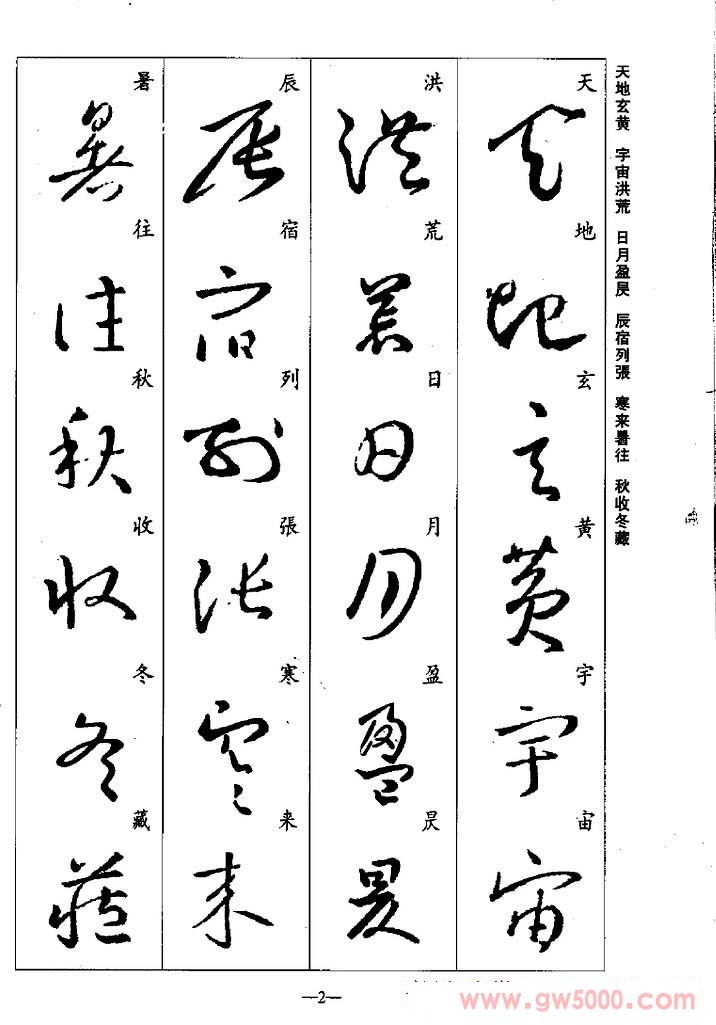 天地玄黄 宇宙洪荒 日月盈昃 辰宿列張 寒来暑往 秋收冬藏
天地玄黄宇宙
洪荒日月盈昃
辰宿列張寒来
暑往秋收冬藏
—2—
www.gw5000.com